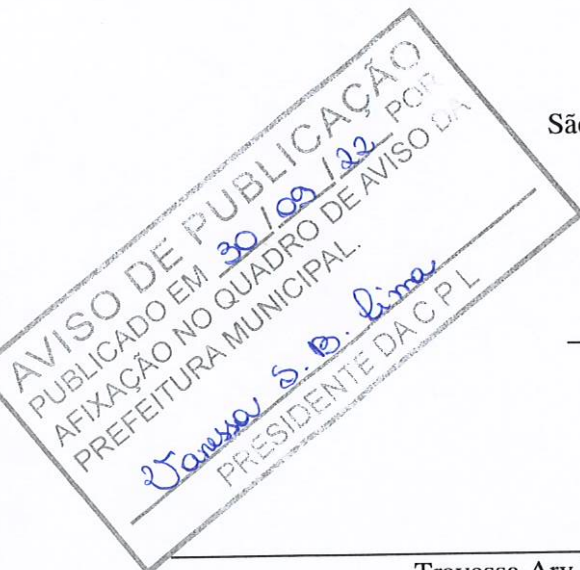 São
AVISO DE PUBLICAÇÃO
PUBLICADO EM 30/09/22 POR
AFIXAÇÃO NO QUADRO DE AVISO DA
PREFEITURA MUNICIPAL.
Vanessa S. B. Lima
PRESIDENTE DA C P L
Travessa Ary